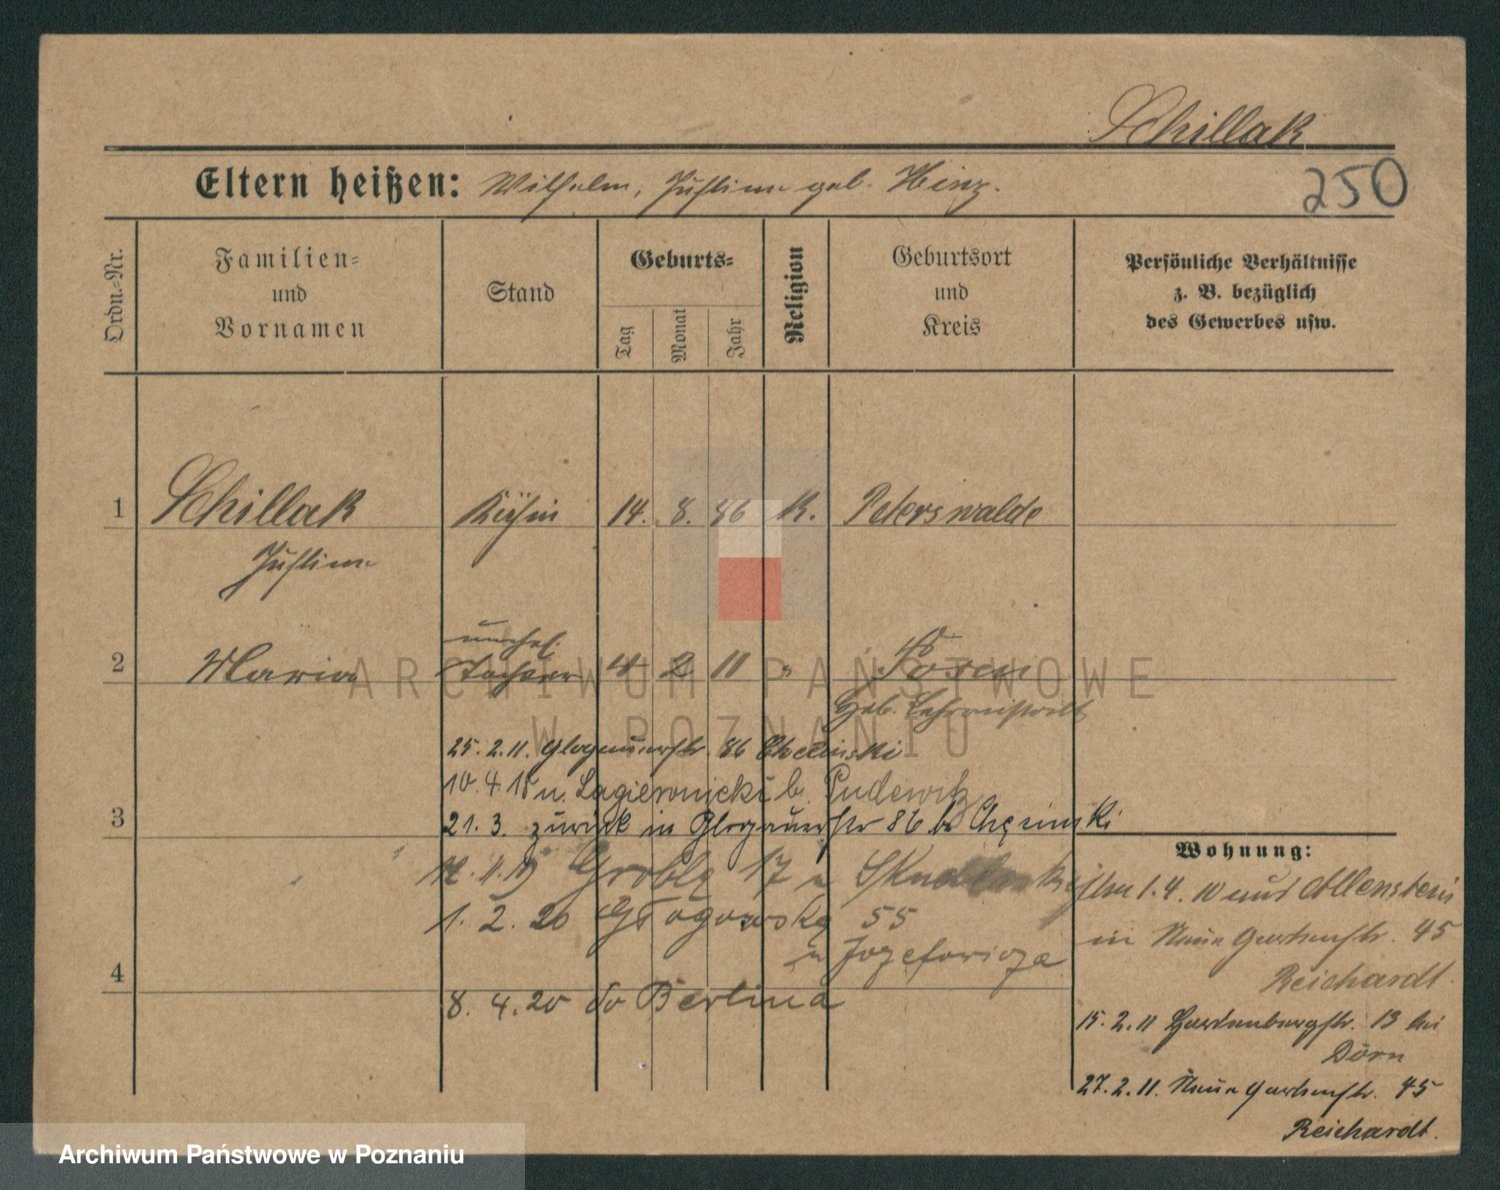 Schillak
Eltern heißen: Wilhelm, Justine geb. Hinz.
250
Ordn.=Nr.
Familien=
und
Vornamen
Stand
Geburts=
Tag
Monat
Jahr
Religion
Geburtsort
und
Kreis
Persönliche Verhältnisse
z. B. bezüglich
des Gewerbes usw.
1 Schillak Köchin 14. 8. 86 K. Peterswalde
Justine
unehel.
2 Maria Tochter 4 2 11 " Posen
Geb. Lehranstalt
25. 2. 11. Glogauerstr. 86
10. 4. 18 n. Lagiewnicki b. Pudewitz
21. 3. zurück in Glogauerstr 86 b
3
Wohnung:
Grobla 17
1. 4. 10 aus Allenstein
1. 2. 20 Głogowska 55
in Neue Gartenstr. 45
u Jozefowicza
Reichardt.
4
8. 4. 20 do Berlina
15. 2. 11 Hardenbergstr. 13 bei
Dörn
27. 2. 11. Neue Gartenstr. 45
Reichardt.
ARCHIWUM PAŃSTWOWE
W POZNANIU
Archiwum Państwowe w Poznaniu